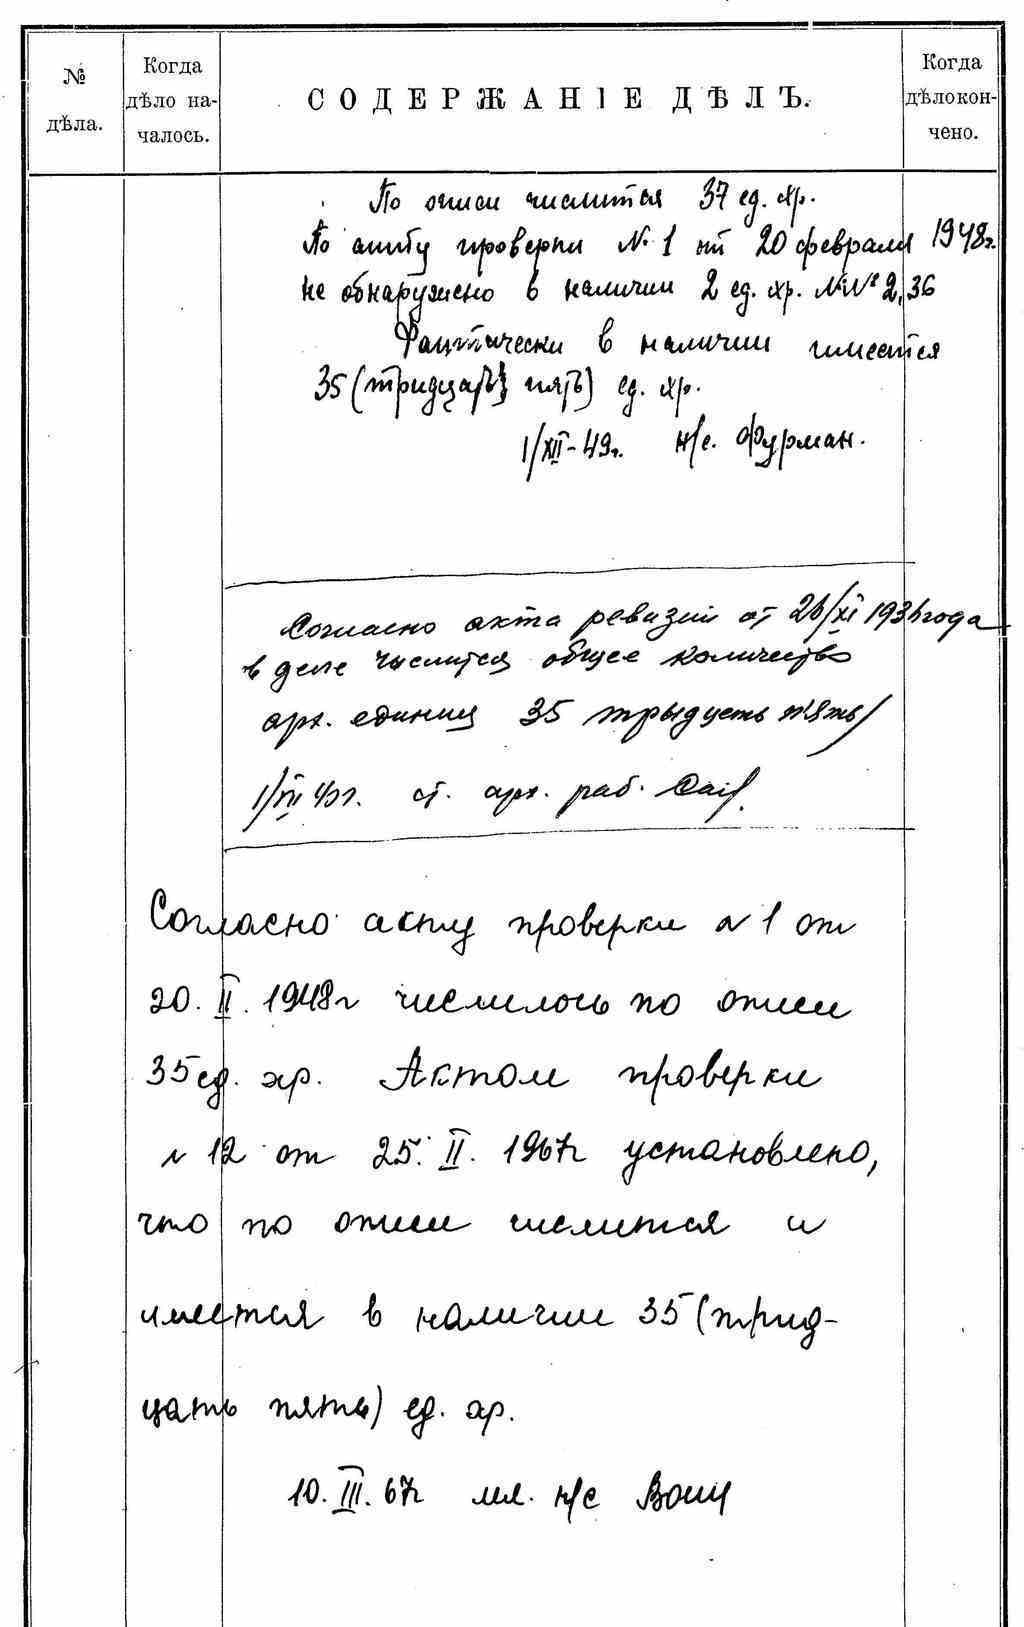 № дѣла.
Когда дѣло на-
чалось.
СОДЕРЖАНІЕ ДѢЛЪ.
Когда дѣло кон-
чено.
По описи числится 37 ед. хр.
По акту проверки № 1 от 20 февраля 1948г.
не обнаружено в наличии 2 ед. хр. №№ 2, 36
Фактически в наличии имеется
35 (тридцать пять) ед. хр.
1/XII-49г. н/с. Фурман.
Согласно акта ревизии от 26/XI года
в деле числится общее количество
арх. единиц 35 трыдцеть пять/
1/XII ст. арх. раб.
Согласно акту проверки № 1 от
20. II. 1948г числилось по описи
35 ед. хр. Актом проверки
№ 12 от 25. II. 1967г установлено,
что по описи числится и
имеется в наличии 35 (трид-
цать пять) ед. хр.
10. III. 67г мл. н/с